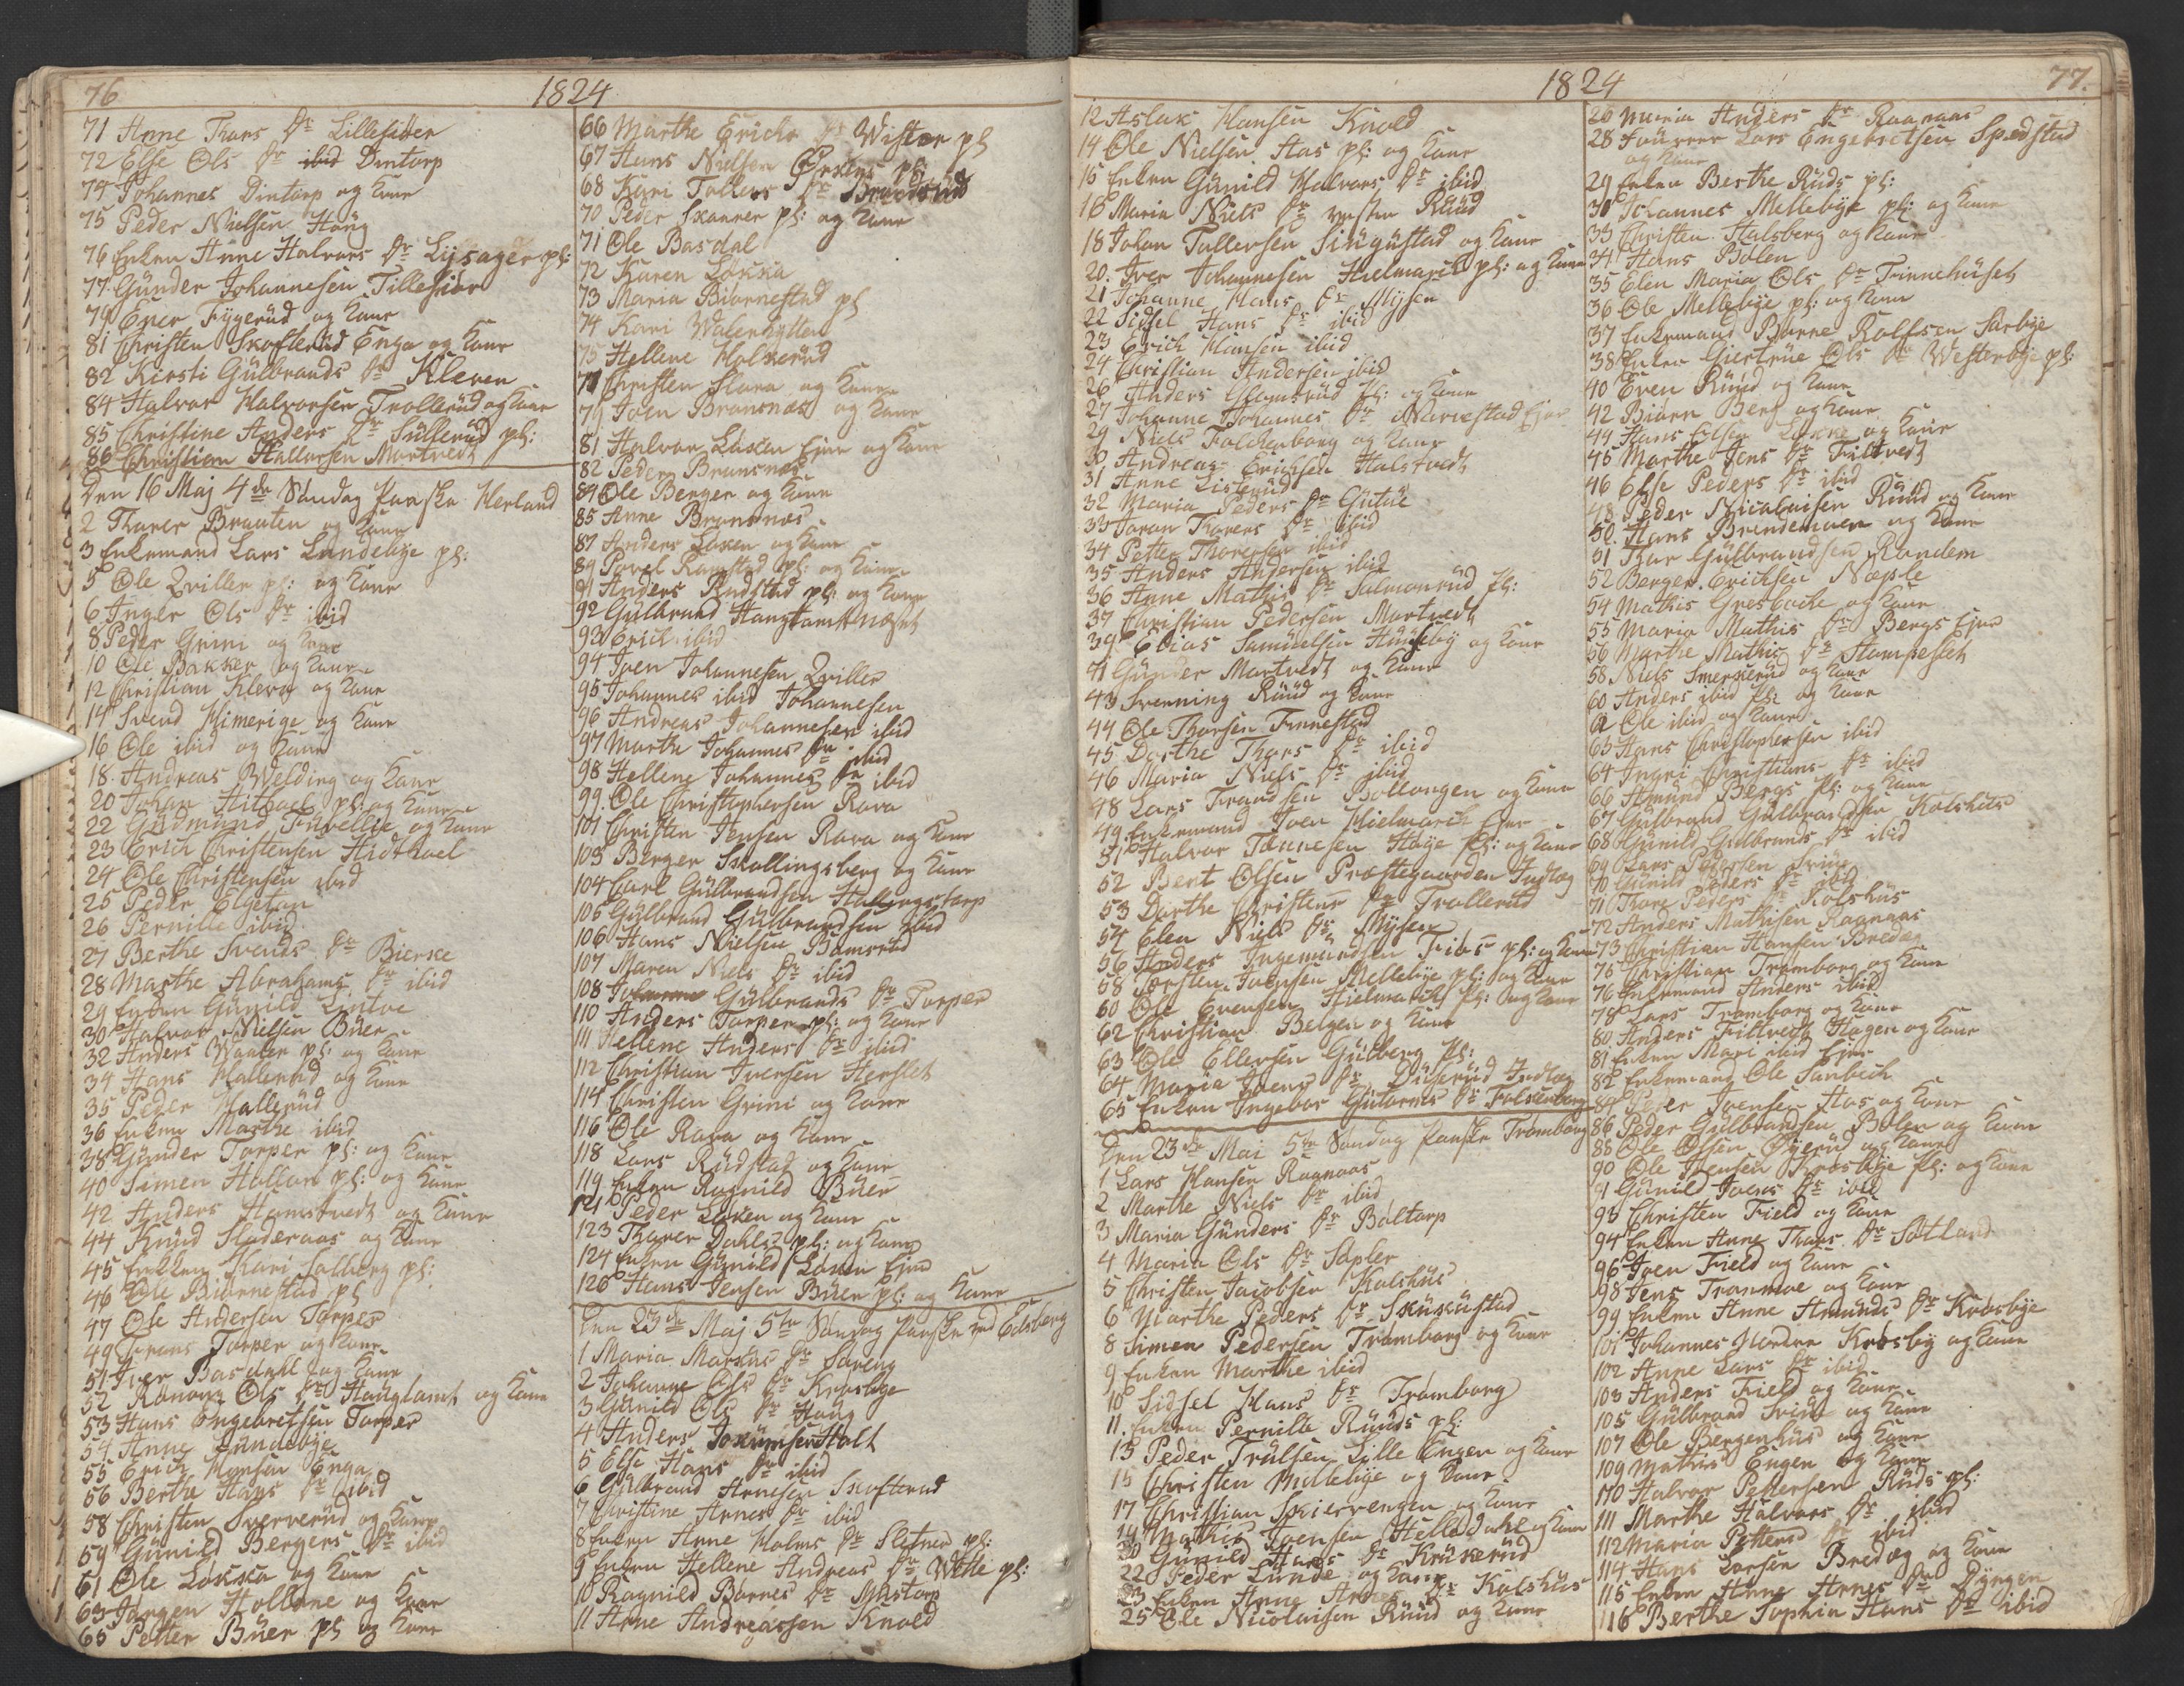 76
1824
71 Anne Thors Dr Lillesider
72 Else Ols Dr ibid Dintorp
74 Johannes Dintorp og Kone
75 Peder Nielsen Haug
76 Enken Anne Halvors Dr Lysager pl:
77 Gunder Johannesen Tillesier
79 Ener Fygerud og Kone
81 Christen Skofterud Enga og Kone
82 Kirsti Gulbrands Dr Kleven
84 Halvor Halvorsen Trollerud og Kone
85 Christine Anders Dr Sullerud pl:
86 Christian Hallorsen Mortvedt
Den 16 Maj 4de Søndag Paaske Herland
2 Thorer Braaten og Kone
3 Enkemand Lars Lundebye pl:
5 Ole Qviller pl: og Kone
6 Inger Ols Dr ibid
8 Peder Grini og Kone
10 Ole Bakker og Kone
12 Christian Kleva og Kone
14 Svend Himerige og Kone
16 Ole ibid og Kone
18 Andreas Welding og Kone
20 Johan Hitboel pl: og Kone
22 Gudmund Furellie og Kone
23 Erich Christensen Hidtboel
24 Ole Christensen ibid
25 Peder Elgetun
26 Pernille ibid
27 Berthe Svends Dr Bierke
28 Marthe Abrahams Dr ibid
29 Enken Gunild Lintoe
30 Halvor Nielsen Buer
32 Anders Waaler pl: og Kone
34 Hans Hallerud og Kone
35 Peder Hallerud
36 Enken Marthe ibid
38 Gunder Torper pl: og Kone
40 Simen Hollon pl: og Kone
42 Anders Hamstvedt og Kone
44 Knud Sloderaas og Kone
45 Enken Kari Solberg pl:
46 Ole Biørnestad pl
47 Ole Andersen Torper
49 Frans Torper og Kone
51 Iver Basdahl og Kone
52 Ranoug Ols Dr Hauglamt og Kone
53 Hans Engebretsen Torper
54 Anne Lundebye
55 Erich Hansen Enga
56 Berthe Hans Dr ibid
58 Christen Sververud og Kone
59 Gunild Bergers Dr ibid
61 Ole Løkka og Kone
63 Jørgen Hollene og Kone
65 Petter Buer pl og Kone
66 Marthe Erichs Dr Wister pl
67 Hans Nielsen Ørkens pl:
68 Kari Tollevs Dr Brandsrud
70 Peder Skanner pl: og Kone
71 Ole Basdal
72 Karen Løkka
73 Maria Biørnestad pl
74 Kari Walerhytten
75 Hellene Holkerud
77 Christen Slora og Kone
79 Joen Bransnæs og Kone
81 Halvor Løken Eier og Kone
82 Peder Bransnæs
84 Ole Berger og Kone
85 Anne Bransnæs
87 Anders Løken og Kone
89 Povel Ramstad pl: og Kone
91 Anders Rudstad pl: og Kone
92 Gulbrand Hauglamtnæset
93 Erich ibid
94 Joen Johannesen Qviller
95 Johannes ibid Johannesen
96 Andreas Johannesen ibid
97 Marthe Johannes Dr ibid
98 Hellene Johannes Dr ibid
99 Ole Christophersen Rava
101 Christen Jensen Rava og Kone
103 Berger Skallingsberg og Kone
104 Carl Gulbrandsen Hallingstorp
105 Gulbrand Gulbrandsen ibid
106 Hans Nielsen Bamsrud
107 Maren Niels Dr ibid
108 Johanne Gulbrands Dr Torper
110 Anders Torper pl: og Kone
111 Hellene Anders Dr ibid
112 Christian Iversen Herslet
114 Christen Grini og Kone
116 Ole Rava og Kone
118 Lars Rudstad og Kone
119 Enken Ragnild Buer
121 Peder Løken og Kone
123 Thorer Dahls pl: og Kone
124 Enken Gunild Løken Eier
126 Hans Jensen Buer pl: og Kone
Den 23de Maj 5te Søndag Paaske ved Edsberg
1 Maria Markus Dr Søreng
2 Johanne Ols Dr Krosbye
3 Gunild Ols Dr Haug
4 Anders Jokumsen Holt
5 Else Hans Dr ibid
6 Gulbrand Arnesen Skofterud
7 Christine Arnes Dr ibid
8 Enken Anne Holms Dr Sletner pl:
9 Enken Hellene Andreas Dr Wette pl:
10 Ragnild Bornes Dr Mustorp
11 Arne Andreassen Knold
1824
77.
12 Aslak Hansen Knold
14 Ole Nielsen Aas pl: og Kone
15 Enken Gunild Halvors Dr ibid
16 Maria Niels Dr vesten Ruud
18 Johan Tollersen Singustad og Kone
20 Iver Johannesen Hielmark pl: og Kone
21 Johanne Hans Dr Mysen
22 Sidsel Hans Dr ibid
23 Erich Hansen ibid
24 Christian Andersen ibid
26 Anders Glomsrud pl: og Kone
27 Johanne Johannes Dr Narvestad Eier
29 Niels Folckenborg og Kone
30 Andreas Erichsen Halstvedt
31 Anne Listerud
32 Maria Peders Dr Gutue
33 Joran Thorers Dr ibid
34 Petter Thorersen ibid
35 Anders Andersen ibid
36 Anne Mathis Dr Salmonrud pl:
37 Christian Pedersen Mortvedt
39 Elias Samuelsen Huuseby og Kone
41 Gunder Mortvedt og Kone
43 Svenning Ruud og Kone
44 Ole Thorsen Finnestad
45 Dorthe Thors Dr ibid
46 Maria Niels Dr ibid
48 Lars Frandsen Bollengen og Kone
49 Enkemand Joen Hielmark Eier
51 Halvor Tønnesen Høye pl: og Kone
52 Bent Olsen Præstegaarden Indlæg
53 Dorthe Christens Dr Trollerud
54 Elen Niels Dr Mysen
56 Anders Ingemundsen Fiøs pl: og Kone
58 Torsten Ivensen Mellebye pl: og Kone
60 Ole Evensen Hielmark pl: og Kone
62 Christian Bergen og Kone
63 Ole Ellersen Gulberg pl:
64 Maria Joens Dr Diiserud Indlæg
65 Enken Ingebor Gutorms Dr Folkenborg
Den 23de Mai 5te Søndag Paaske Trømborg
1 Lars Hansen Raanaas
2 Marthe Niels Dr ibid
3 Maria Gunders Dr Boltorp
4 Maria Ols Dr Sapler
5 Christen Jacobsen Kolshus
6 Marthe Peders Dr Skukustad
8 Simen Pedersen Trømborg og Kone
9 Enken Marthe ibid
10 Sidsel Hans Dr Trømborg
11 Enken Pernille Ruuds pl:
13 Peder Trulsen Lille Engen og Kone
15 Christen Mellebye og Kone
17 Christian Skiervengen og Kone
19 Mathis Joensen Helle Dahl og Kone
20 Gunild Hans Dr Krukerud
22 Peder Lunde og Kone
23 Enken Anne Arnes Dr Kolshus
25 Ole Nicolaisen Ruud og Kone
26 Maria Anders Dr Raanaas
28 Fourer Lars Engebretsen Spedstad
og Kone
29 Enken Berthe Ruds pl:
30 Johannes Mellebye pl: og Kone
33 Christen Halsberg og Kone
34 Hans Bølen
35 Elen Maria Ols Dr Finnehuset
36 Ole Mellebye pl: og Kone
37 Enkemand Borne Rolfsen Sørbye
38 Enken Giertrue Ols Dr Westerbye pl:
40 Even Ruud og Kone
42 Biørn Berg og Kone
44 Hans Olsen Løkke og Kone
45 Marthe Jens Dr Filtvedt
46 Else Peders Dr ibid
48 Peder Nicolaisen Ruud og Kone
50 Hans Brendemoen og Kone
51 Thor Gulbrandsen Randem
52 Berger Erichsen Næple
54 Mathis Gresbøche og Kone
55 Maria Mathis Dr Bergs Eier
56 Marthe Mathis Dr Stampeslet
58 Niels Smerkerud og Kone
60 Anders ibid pl: og Kone
62 Ole ibid og Kone
63 Hans Christophersen ibid
64 Ingri Christians Dr ibid
66 Amund Bergs pl: og Kone
67 Gulbrand Gulbrandsen Kolshus
68 Gunild Gulbrands Dr ibid
69 Lars Pedersen Sriue
70 Gunild Peders Dr ibid
71 Thore Peders Dr Kolshus
72 Anders Mathisen Raanaas
73 Christian Hansen Bredeg
75 Christian Trømborg og Kone
76 Enkemand Anders ibid
78 Lars Trømborg og Kone
80 Anders Filtvedt Hagen og Kone
81 Enken Mari ibid Eier
82 Enkemand Ole Sanbech
84 Peder Joensen Aas og Kone
86 Peder Gulbrandsen Bølen og Kone
88 Ole Olsen Øyerud og Kone
90 Ole Jensen Krosbye pl: og Kone
91 Gunild Joens Dr ibid
93 Christen Field og Kone
94 Enken Anne Thors Dr Søtland
96 Joen Field og Kone
98 Jens Tranmoe og Kone
99 Enken Anne Amunds Dr Krosbye
101 Johannes Norden Krosby og Kone
102 Anne Lars Dr ibid
103 Anders Field og Kone
105 Gulbrand Sriue og Kone
107 Ole Bergenhus og Kone
109 Mathis Engen og Kone
110 Halvor Pettersen Ruds pl:
111 Marthe Halvors Dr ibid
112 Maria Petters Dr ibid
114 Hans Larsen Bredeg og Kone
115 Enken Anne Arnes Dr Dyngen
116 Berthe Sophia Hans Dr ibid